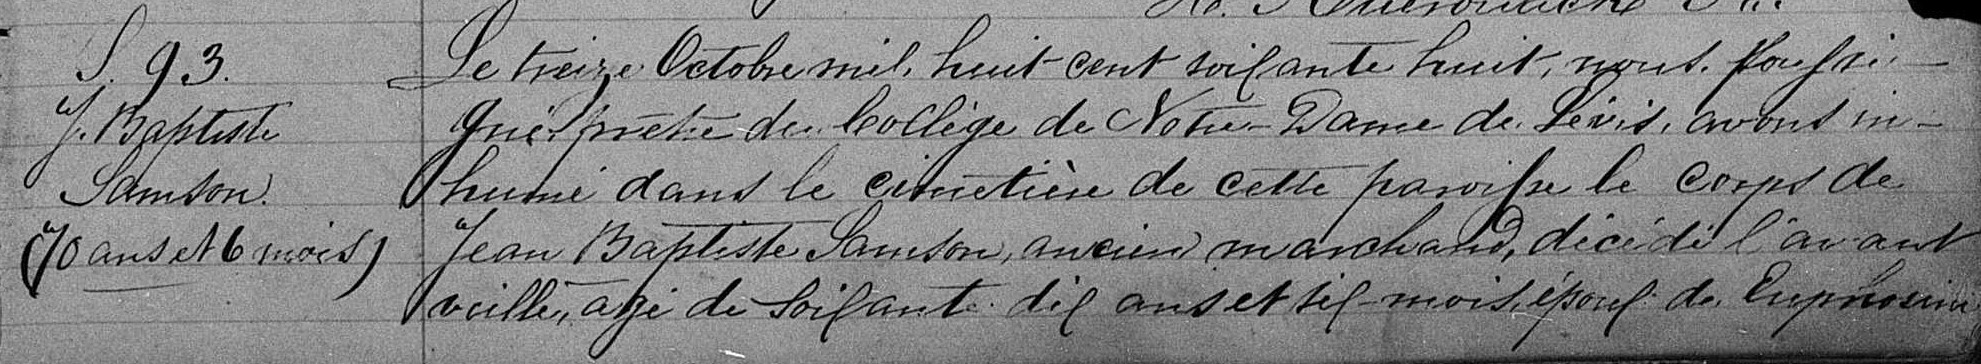 S. 93.
J. Baptiste
Samson.
(70 ans et 6 mois)
Le treize Octobre mil huit cent soixante huit, nous, soussi-
gné, prêtre du Collège de Notre-Dame de Lévis, avons in-
humé dans le cimetière de cette paroisse le corps de
Jean Baptiste Samson, ancien marchand, décédé l'avant
veille, agé de soixante dix ans et six mois, époux de Euphrosine